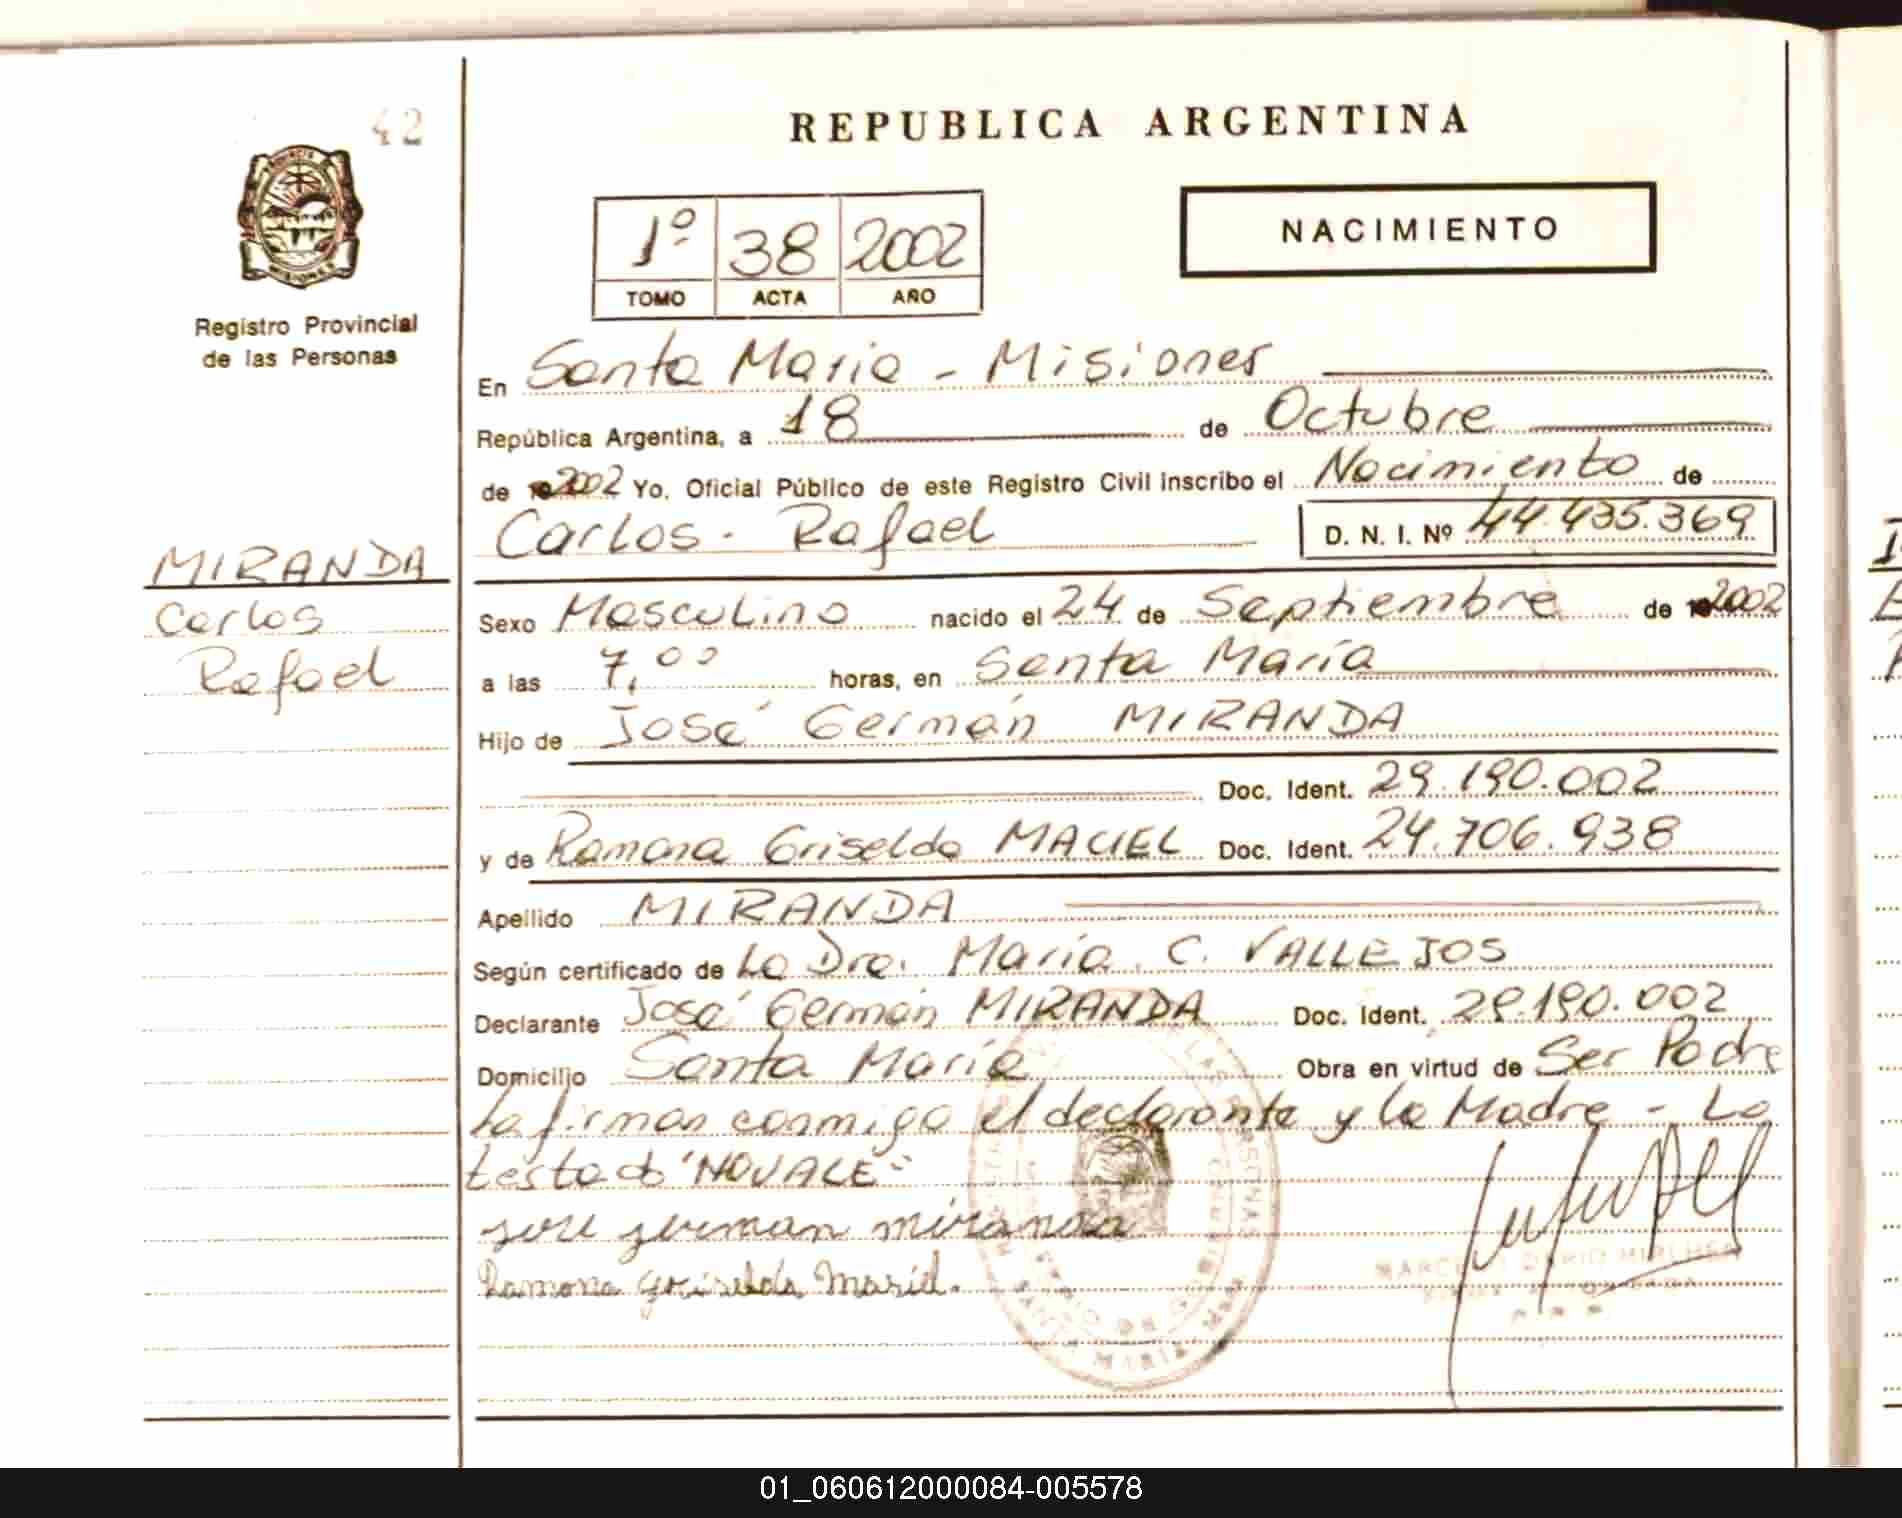 42
REPUBLICA ARGENTINA
NACIMIENTO
1º 38 2002
TOMO ACTA AÑO
PROVINCIA DE
MISIONES
Registro Provincial
de las Personas
En Santa Maria - Misiones
República Argentina, a 18 de Octubre
de 2002 Yo, Oficial Público de este Registro Civil inscribo el Nacimiento de
Carlos - Rafael D. N. I. Nº 44.435.369
MIRANDA
Carlos
Rafael
Sexo Masculino nacido el 24 de Septiembre de 2002
a las 7,00 horas, en Santa María
Hijo de José Germán MIRANDA
Doc. Ident. 29.190.002
y de Ramona Griselda MACIEL Doc. Ident. 24.706.938
Apellido MIRANDA
Según certificado de La Dra. María C. VALLEJOS
Declarante José Germán MIRANDA Doc. Ident. 29.190.002
Domicilio Santa María Obra en virtud de Ser Padre
La firman conmigo el declarante y la Madre - Lo
testado "NO VALE"
jose german miranda
Ramona Griselda Maciel.
01_060612000084-005578